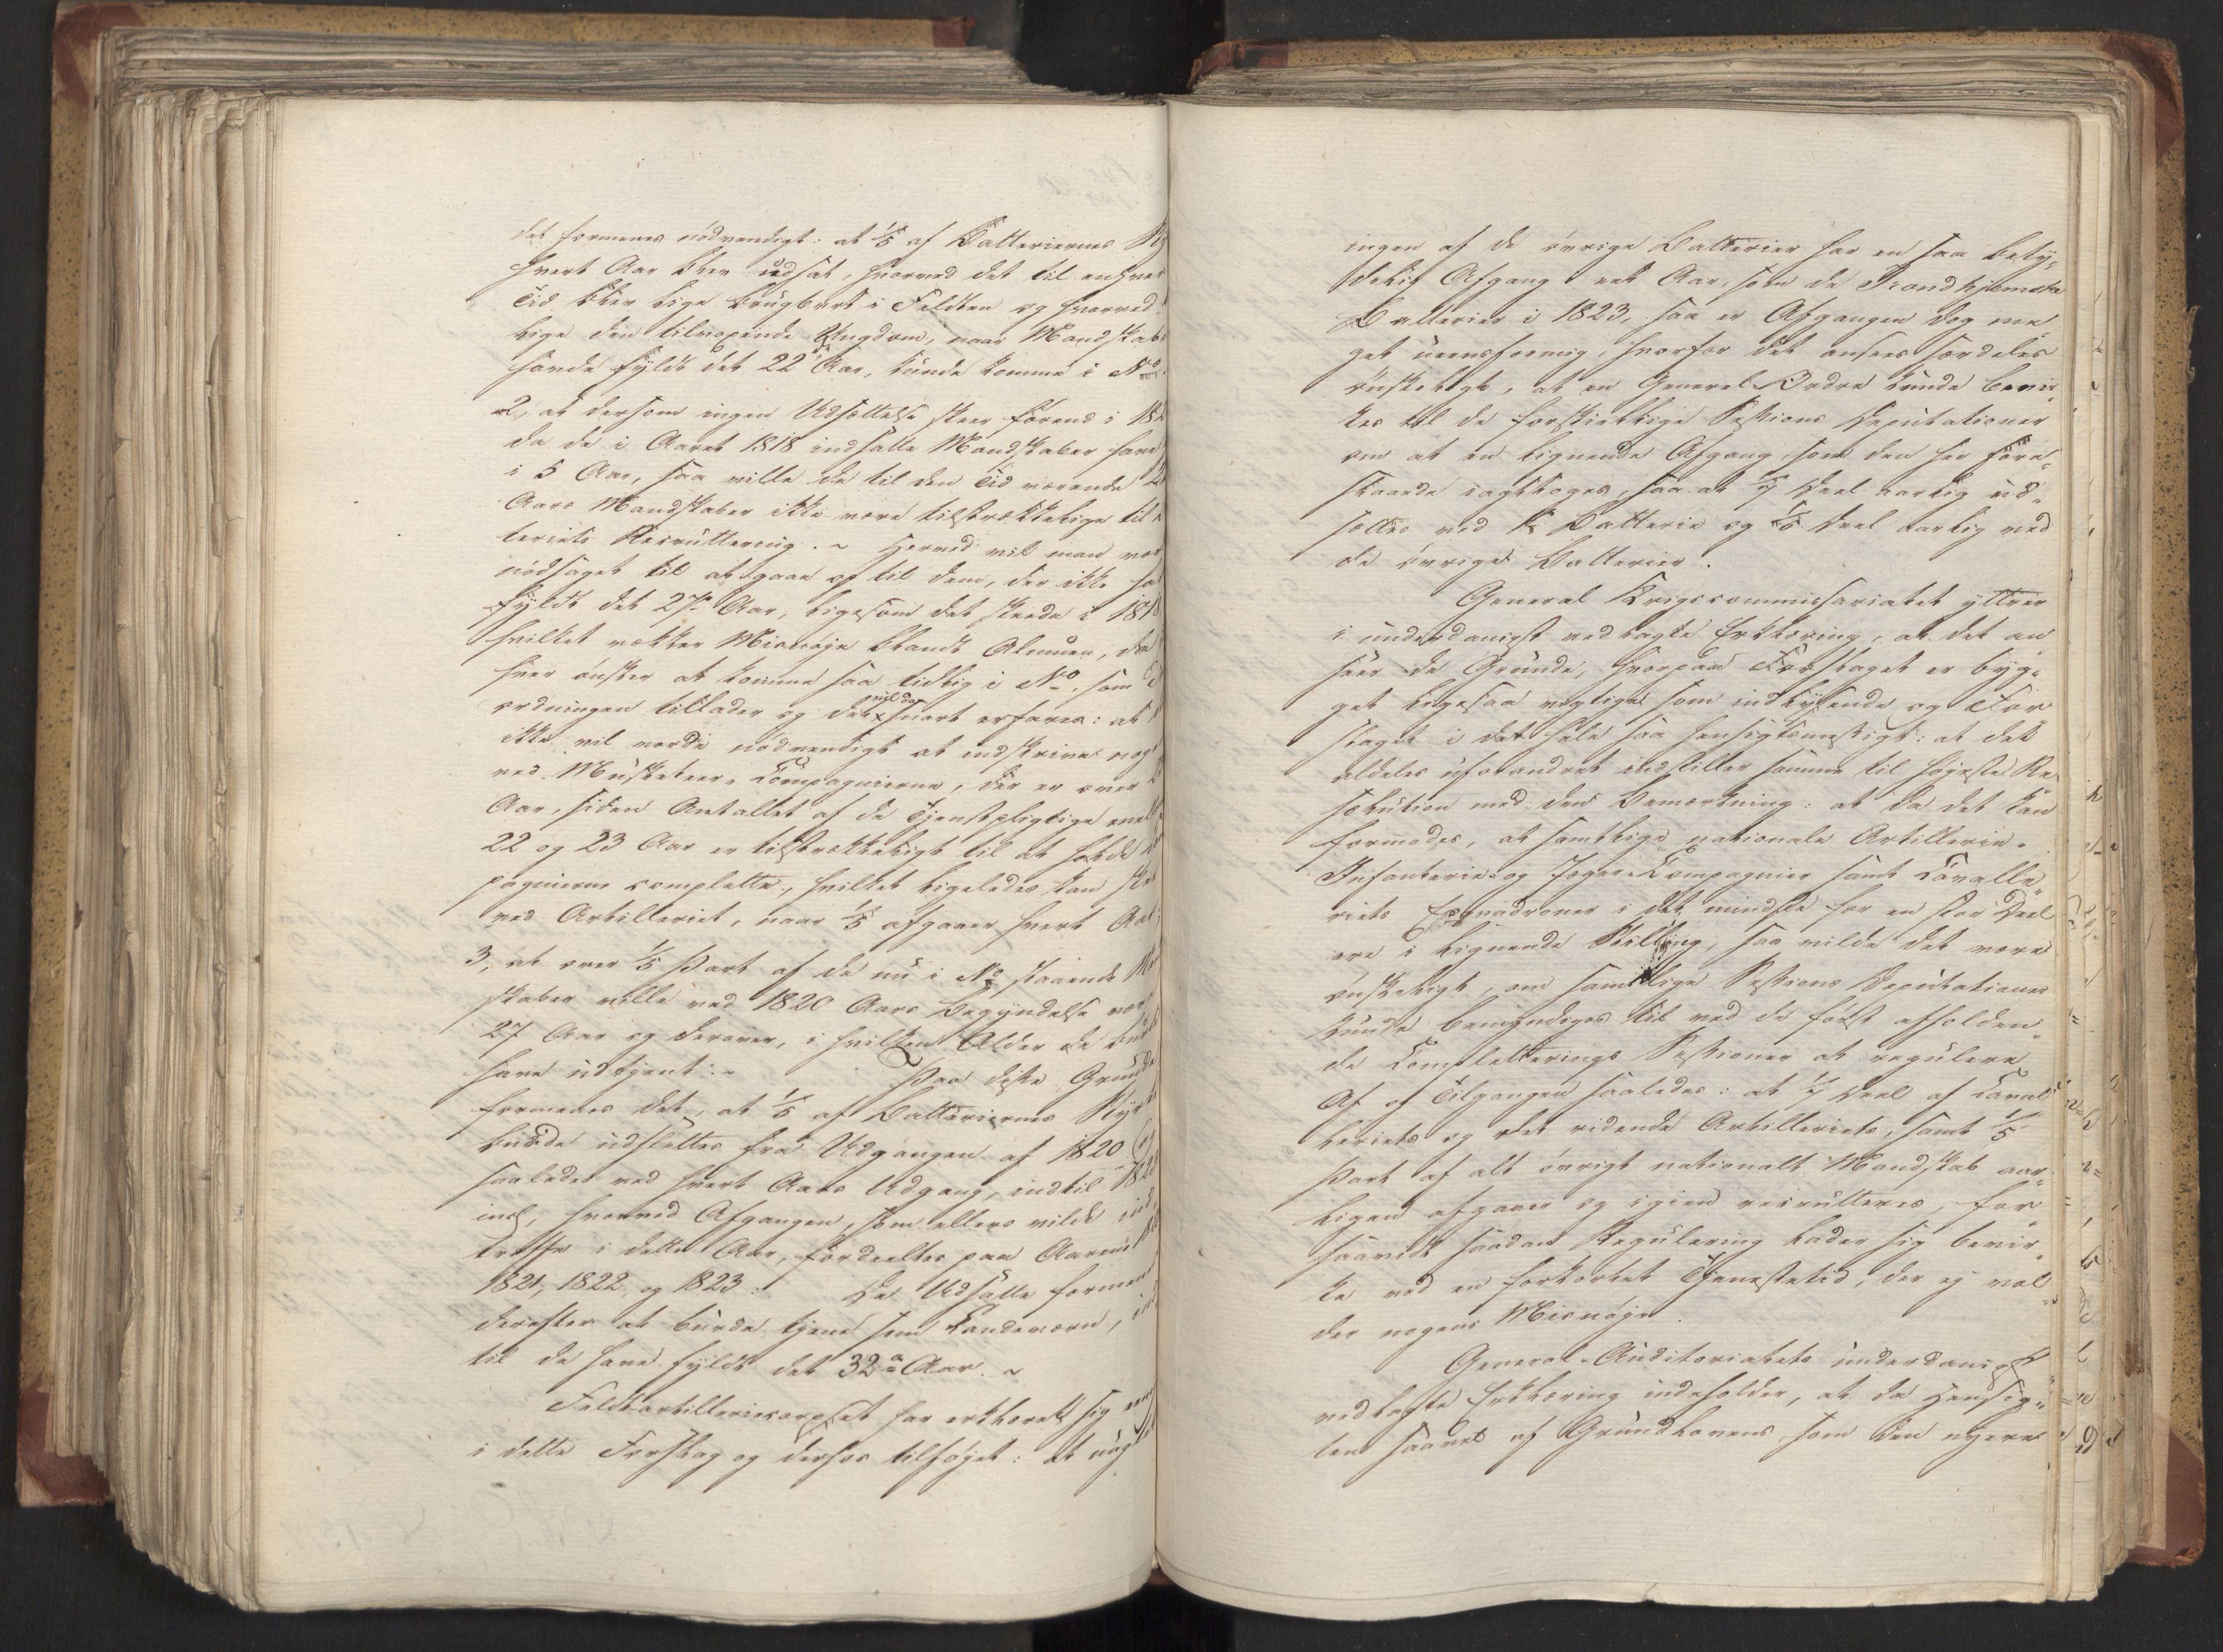 det formenes nödvendigt: at 1/5 af Batteriernes
hvert Aar blev udsat, hvorved det til enhver
Tid blev lige brugbart i Feldten og hvorved
lige den tilvoxende Ungdom, naar Mandskabet
havde fyldt det 22de Aar, kunde komme i No
2, at dersom ingen Udsættelse skeer förend i 182
da de i Aaret 1818 indsatte Mandskaber have
i 5 Aar, saa ville de til den Tid værende
Aars Mandskaber ikke være tilstrækkelige til
teriets Recruttering. ~ Herved vil man være
nödsaget til at gaae af til dem, der ikke ha
fyldt det 27de Aar, ligesom det skeede i 1818
hvilket vækker Misnöje blandt Almuen, da
hver önsker at komme saa tidlig i No, som
ordningen tillader og det vil da snart erfares: at
ikke vil vorde nödvendigt at indskrive nog
ved Musketeer-Compagnierne, der er over
Aar, siden Antallet af de Tjenstpligtige mell
22 og 23 Aar er tilstrækkeligt til at holde
pagnierne complette, hvilket ligeledes kan skee
ved Artilleriet, naar 1/5 afgaaer hvert Aar;
3, at over 1/5 Part af de nu i No staaende
skaber ville ved 1820 Aars Begyndelse være
27 Aar og derover, i hvilken Alder de burde
have udtjent. ~ Paa diste Grunde
formenes det, at 1/5 af Batteriernes
burde udsættes fra Udgangen af 1820 og
saaledes ved hvert Aars Udgang, indtil 182
incl, hvorved Afgangen, som ellers vilde ind
træffe i dette Aar, fordeeltes paa Aarene
1821, 1822, og 1823. De Udsatte formenes
derefter at burde tjene som Landeværn, ind
til de have fyldt det 32te Aar. ~
Feldtartilleriecorpset har erklæret sig enig
i dette Forslag og derhos tilföjet: at uag
ingen af de övrige Batterier har en saa bety„
delig Afgang eet Aar, som de Trondhjemske
Batterier i 1823, saa er Afgangen dog me„
get ueensformig, hvorfor det ansees særdeles
önskeligt, at en General-Ordre kunde bevir„
kes til de forskiellige Sessions Deputationer
om at en lignende Afgang, som den her fore„
slaaede iagttoges, saa at 1/7 Deel aarlig ud„
sættes ved Batterie og 1/5 Deel aarlig ved
de övrige Batterier.
General Krigscommissariatet yttrer
i underdanigst vedlagte Erklæring, at det an
seer de Grunde, hvorpaa Forslaget er byg„
get ligesaa vigtige som indlysende og For„
slaget i det Hele saa hensigtsmessigt: at det
aldeles uforandret indstiller samme til höjeste Re„
solution med den Bemærkning: at da det kan
formodes, at samtlige nationale Artillerie-
Infanterie- og Jæger-Compagnier samt Cavalle„
riets Esqvadroner i det mindste for en stor Deel
ere i lignende Stilling, saa vilde det være
önskeligt, om samtlige Sessions Deputationer
kunde bemyndiges til ved de först afholden„
de Completterings Sessioner at regulere
Af og Tilgangen saaledes: at 1/7 Deel af Caval„
leriets og det ridende Artilleriets, samt 1/5
Part af alt övrigt nationalt Mandskab aar„
ligen afgaaer og igien recrutteres, for
saavidt saadan Regulering lader sig bevir„
ke ved en forkortet Tjenestetid, der ej vol„
der nogens Misnöje.
General-Auditoriatets underdanigst
vedlagte Erklæring indeholder, at da Hensig„
ten saavel af Grundlovens som den nyere